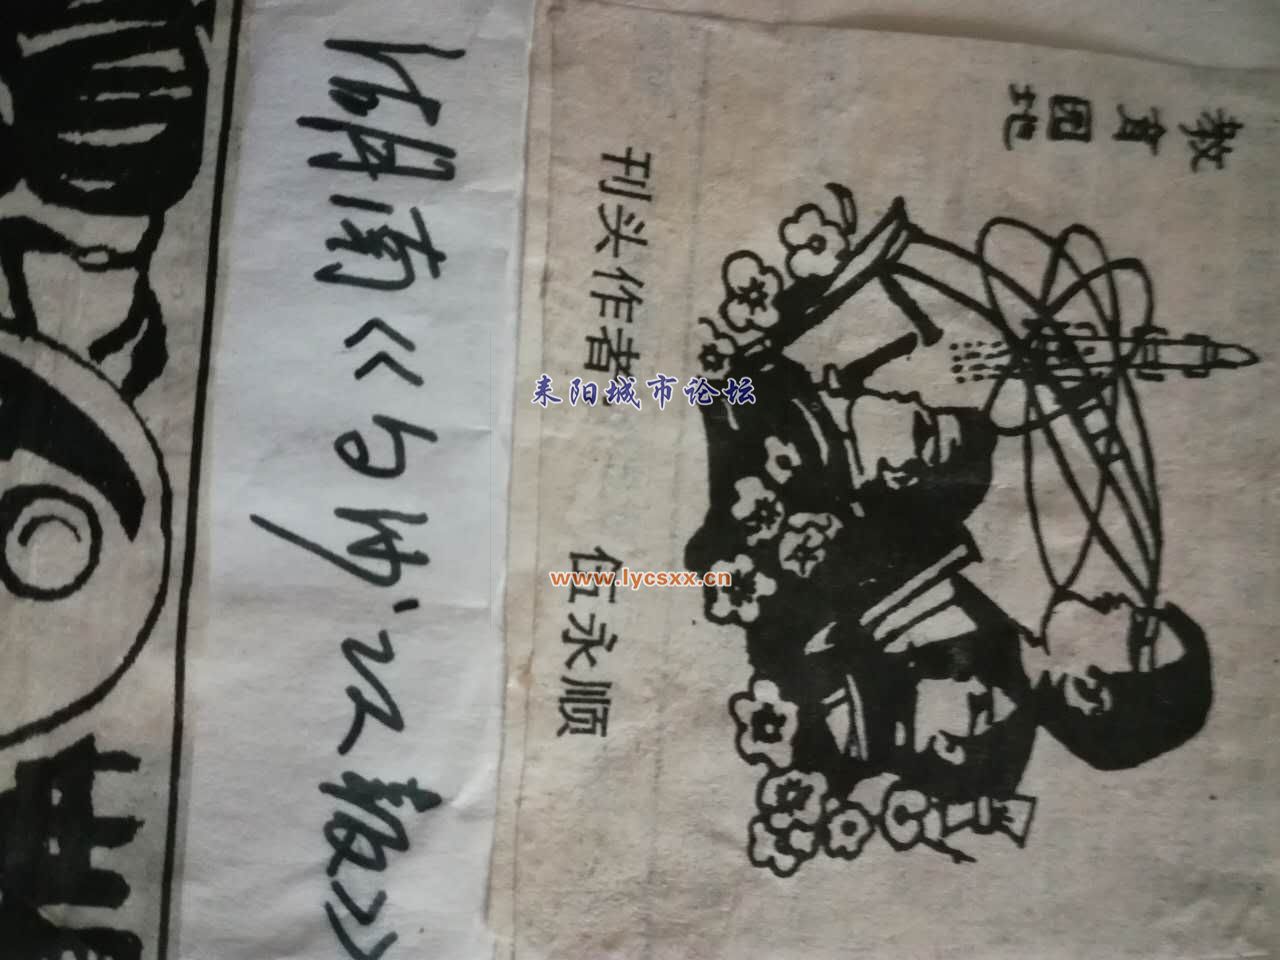 教育园地
刊头作者: 伍永顺
湖南《 报》
耒阳城市论坛
www.lycsxx.cn